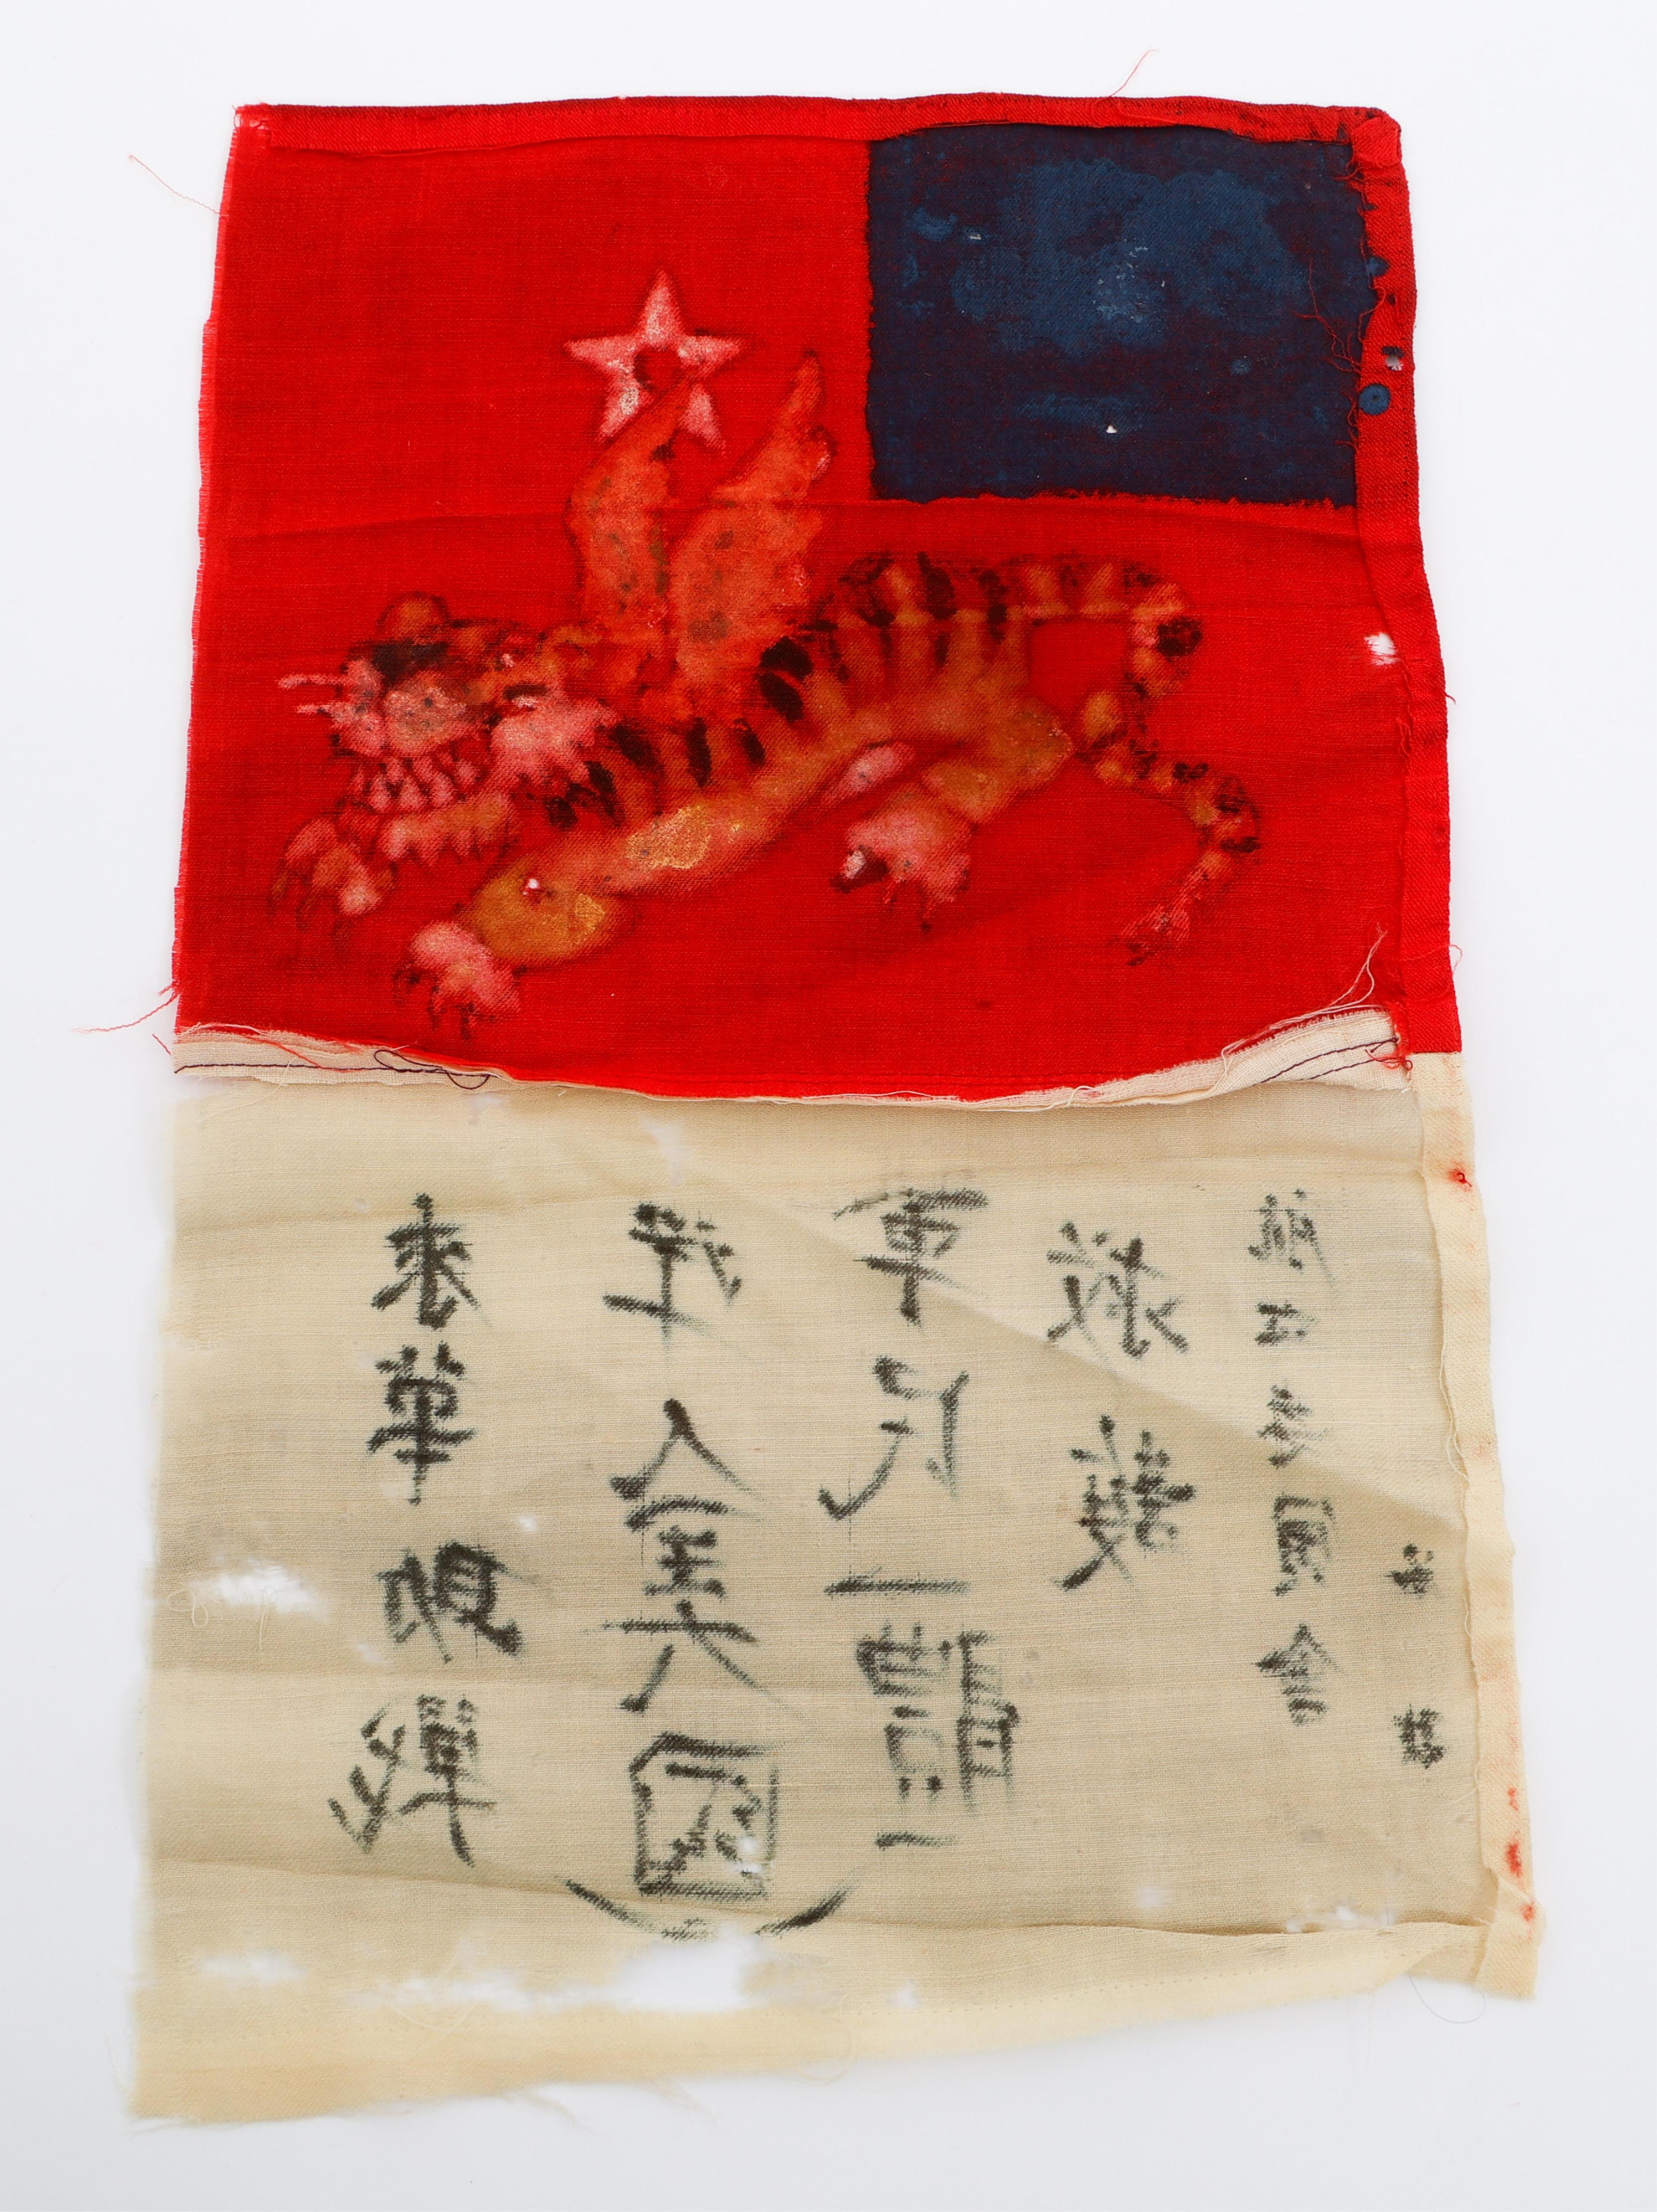 來華助戰
洋人（美國）
軍民一體
救護
航空委員會